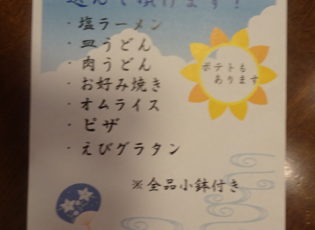 選んで頂けます!
・塩ラーメン
・皿うどん
・肉うどん
・お好み焼き
・オムライス
・ピザ
・えびグラタン
ポテトも
あります
※全品小鉢付き